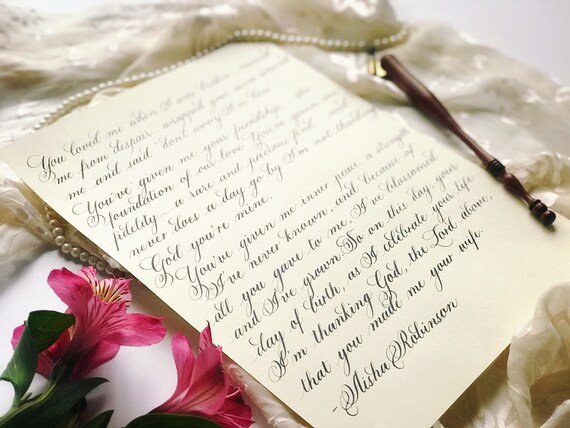 You loved me when I was broken, rescued
me from despair, wrapped your arms around
me and said "don't worry I'm here."
You've given me your friendship, the
foundation of our love. You've given me
fidelity... a rare and precious find... and
never does a day go by I'm not thanking
God you're mine.
You've given me inner peace, a strength
I've never known, and because of
all you gave to me, I've blossomed
and I've grown. So on this day, your
day of birth, as I celebrate your life
I'm thanking God, the Lord above,
that you made me your wife.
-Aisha Robinson